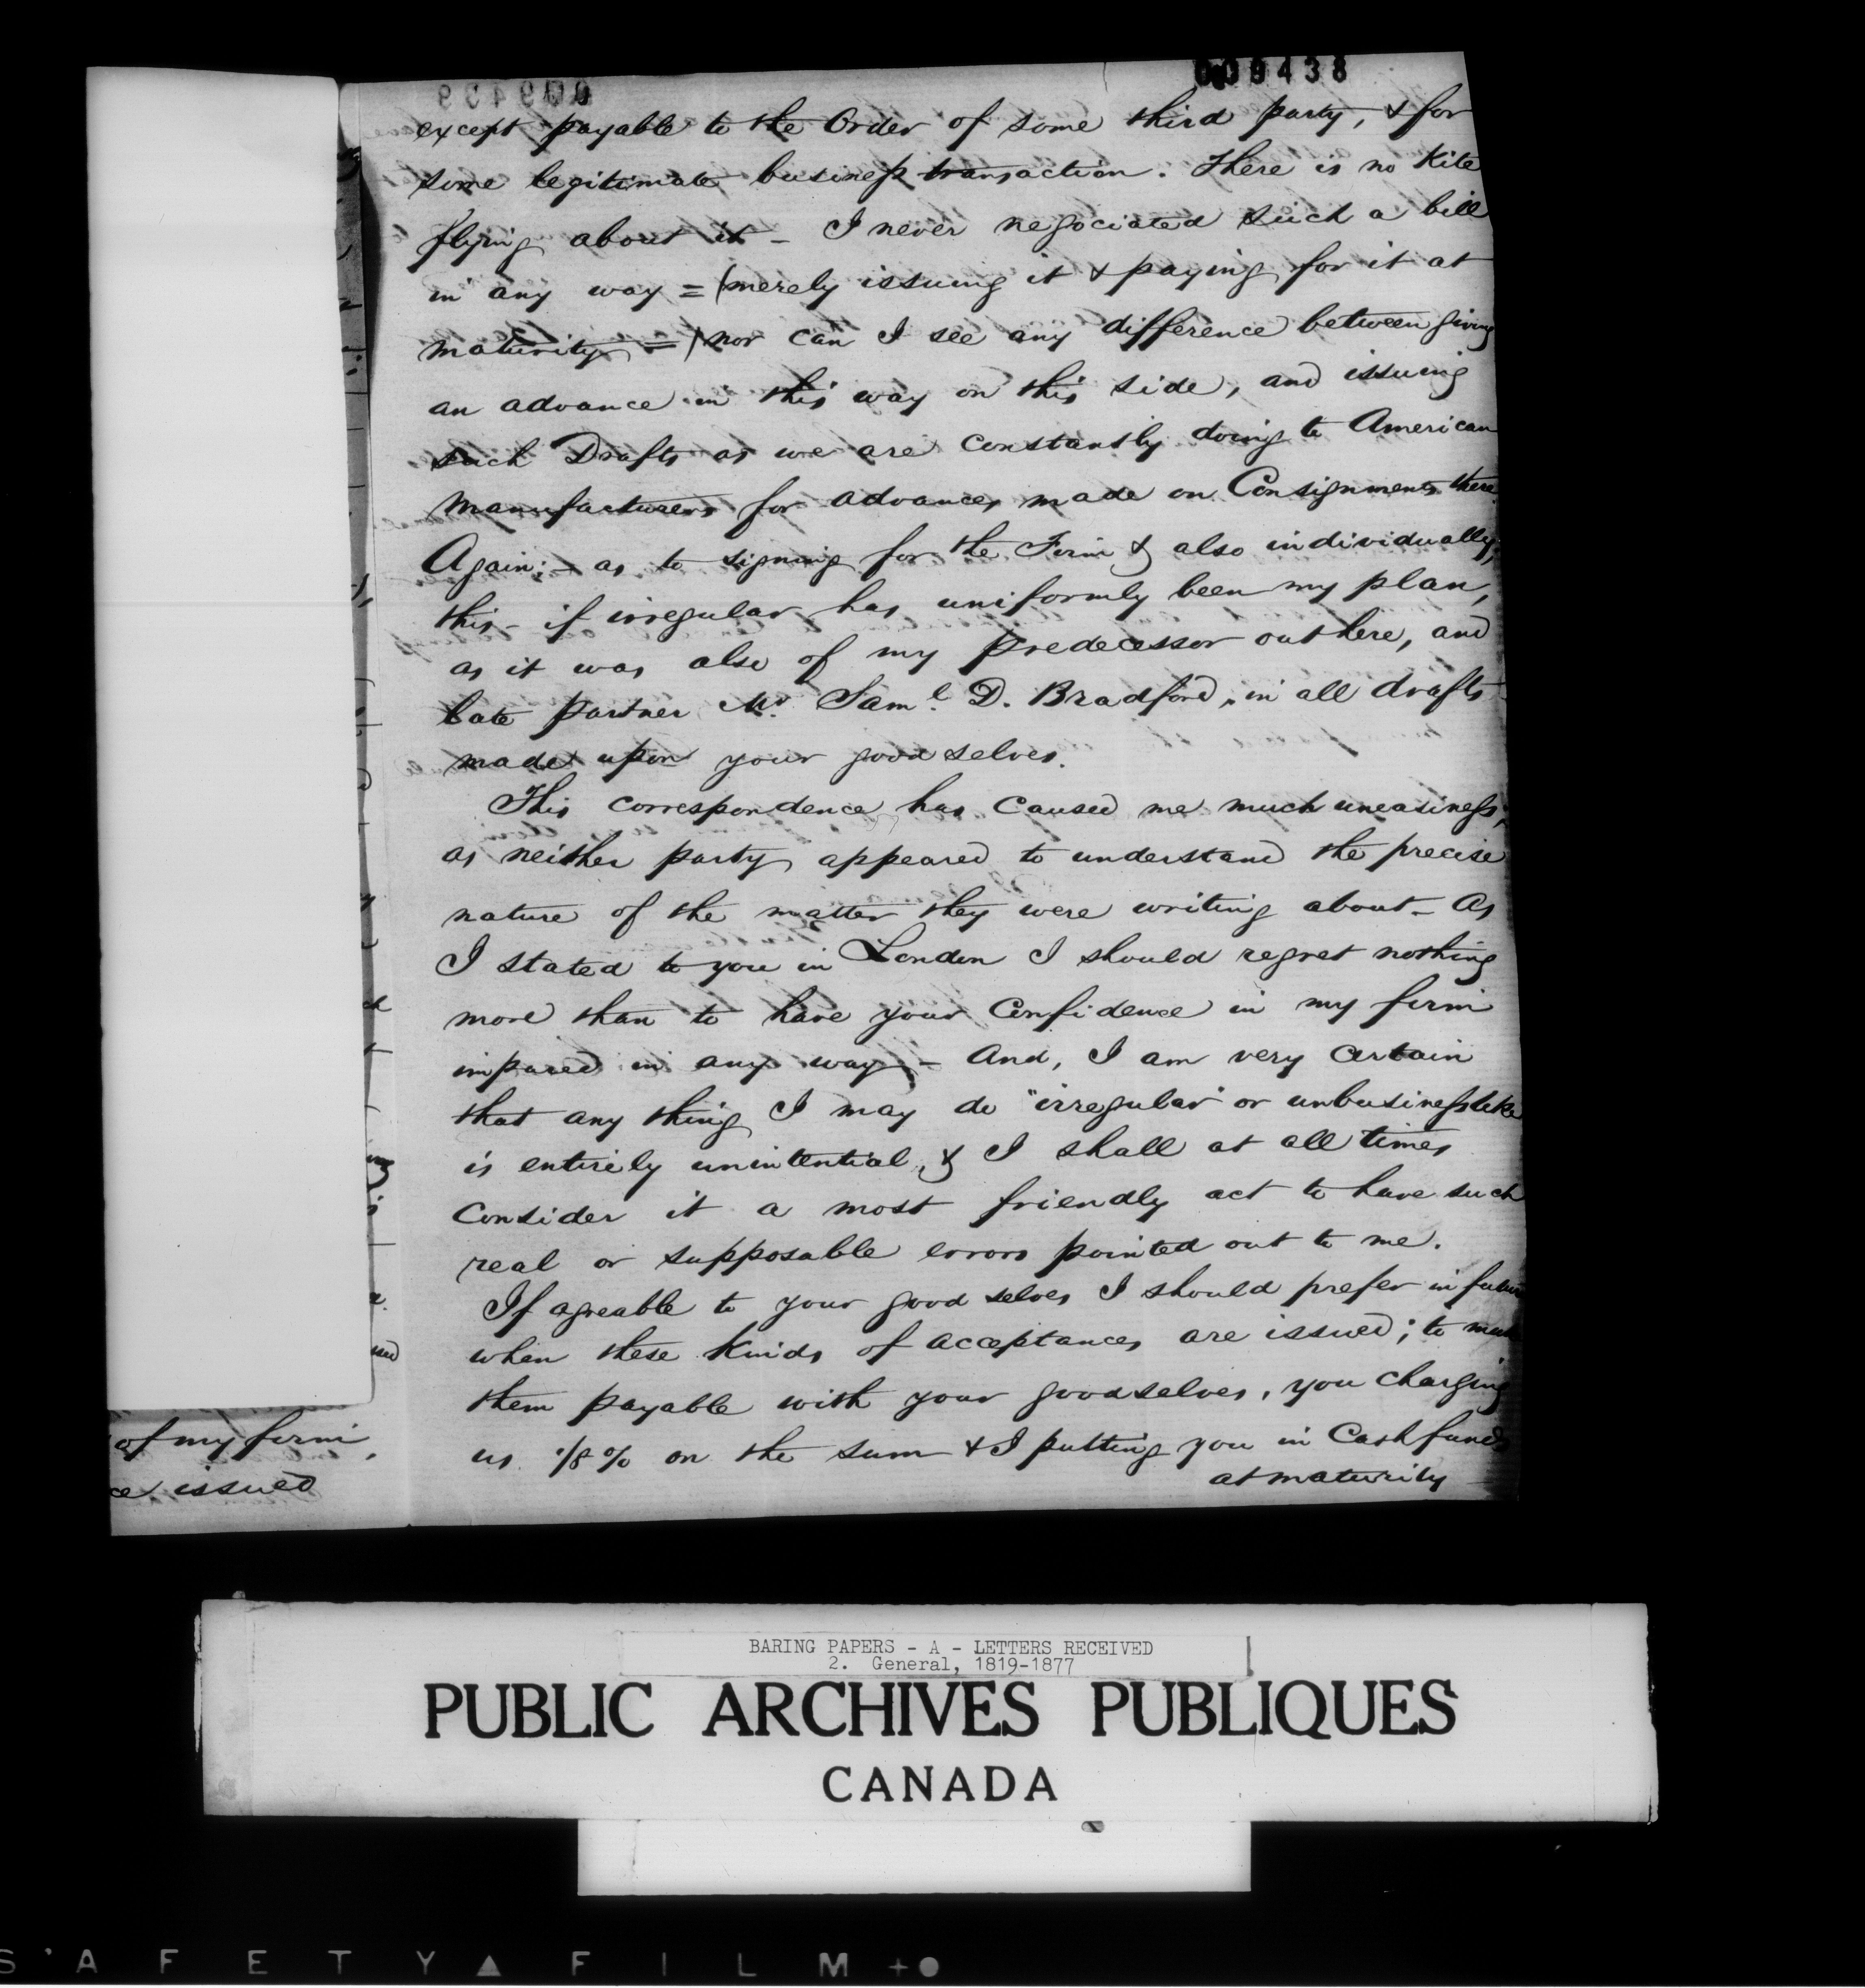 009438
except payable to the Order of some third party, & for
some legitimate business transaction. There is no Kite
flying about it - I never negociated such a bill
in any way = (merely issuing it & paying for it at
maturity =) nor can I see any difference between giving
an advance in this way on this side, and issuing
such Drafts as we are constantly doing to American
manufacturers for advances made on Consignments there
Again; - as to signing for the Firm & also individually,
this - if irregular has uniformly been my plan,
as it was also of my predecessor out here, and
late partner Mr. Saml. D. Bradford, in all drafts
made upon your good selves.
This correspondence has caused me much uneasiness,
as neither party appeared to understand the precise
nature of the matter they were writing about - As
I stated to you in London I should regret nothing
more than to have your Confidence in my firm
impared in any way - And, I am very certain
that any thing I may do "irregular" or unbusinesslike
is entirely unintential, & I shall at all times
Consider it a most friendly act to have such
real or supposable errors pointed out to me.
If agreable to your good selves I should prefer in future
when these Kinds of acceptances are issued; to make
them payable with your goodselves, you charging
us 1/8 % on the sum & I putting you in Cash funds
at maturity
of my firm
issued
BARING PAPERS - A - LETTERS RECEIVED
2. General, 1819-1877
PUBLIC ARCHIVES PUBLIQUES
CANADA
S'AFETY▲FILM+●